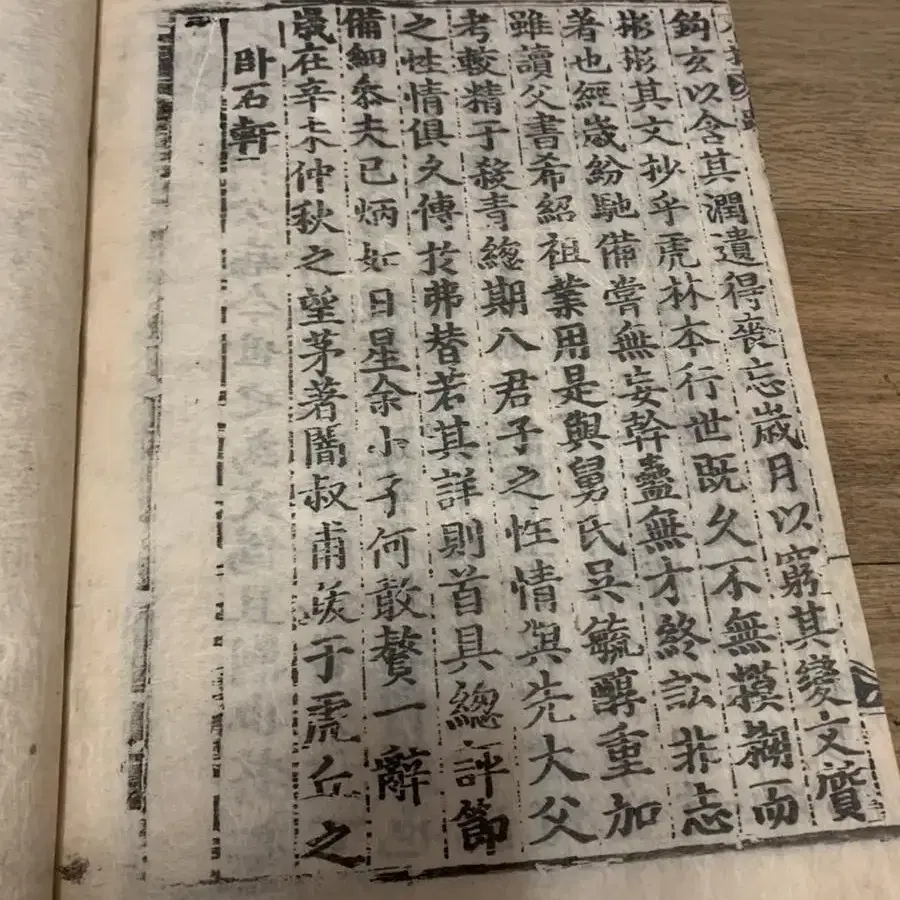 鈎玄以含其潤遺得喪忘歲月以窮其變文質
彬彬其文抄乎虎林本行世既久不無摸糊而
著也經歲紛馳備嘗無妄幹蠱無才終訟非志
雖讀父書希紹祖業用是與舅氏吳毓醇重加
考較精于殺青緫期八君子之性情與先大父
之性情俱久傳於弗替若其詳則首具總評節
備細叅夫已炳如日星余小子何敢贅一辭
歲在辛未仲秋之望茅著闇叔甫跋于虎丘之
卧石軒